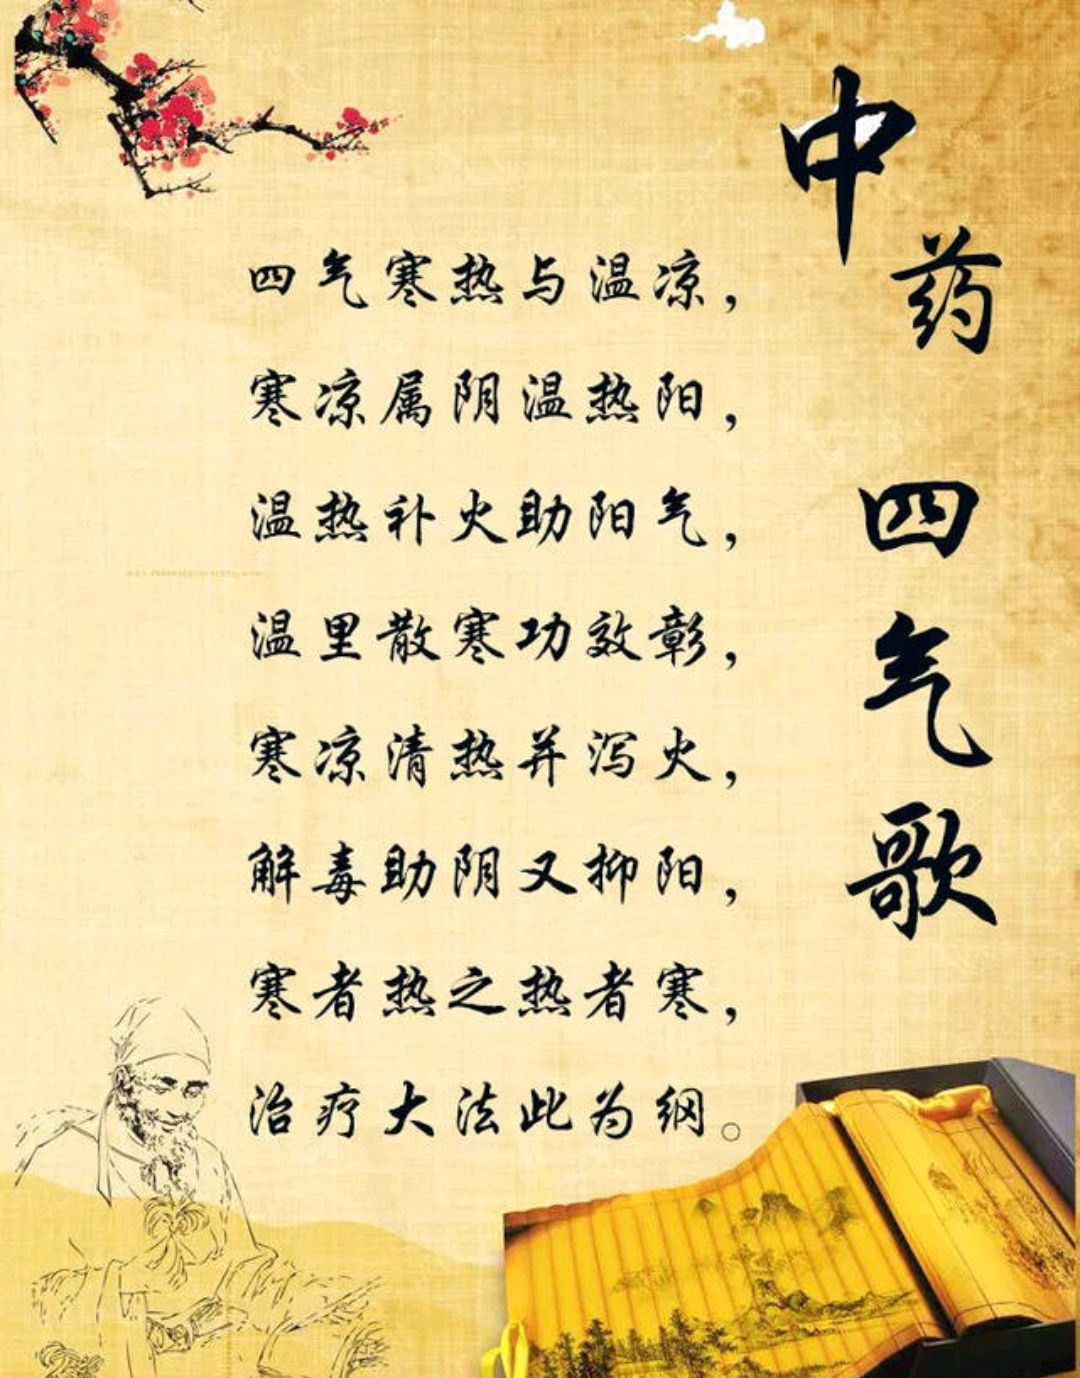 中药四气歌
四气寒热与温凉，
寒凉属阴温热阳，
温热补火助阳气，
温里散寒功效彰，
寒凉清热并泻火，
解毒助阴又抑阳，
寒者热之热者寒，
治疗大法此为纲。